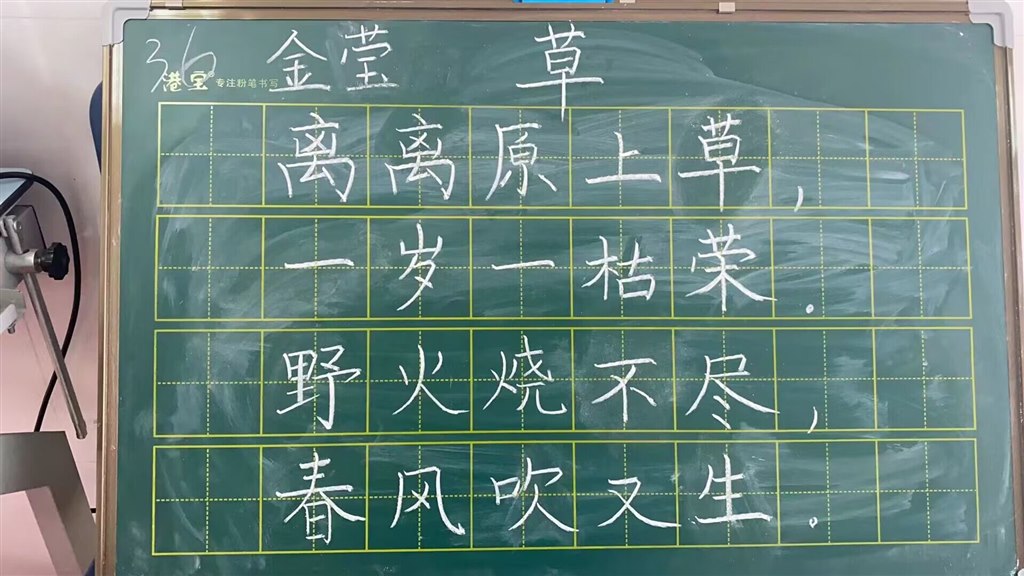 36 金莹 草
港宝 专注粉笔书写
离离原上草，
一岁一枯荣.
野火烧不尽，
春风吹又生。